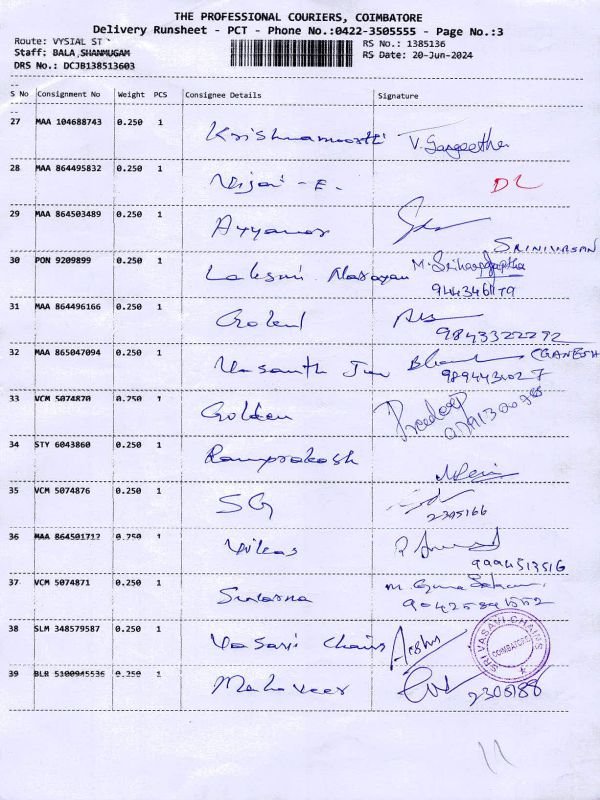 THE PROFESSIONAL COURIERS, COIMBATORE
Delivery Runsheet - PCT - Phone No.:0422-3505555 - Page No.:3
Route: VYSIAL ST
Staff: BALA,SHANMUGAM
DRS No.: DCJB138513603
RS No.: 1385136
RS Date: 20-Jun-2024
S No Consignment No Weight PCS Consignee Details Signature
27 MAA 104688743 0.250 1 Krishnamoorthi V. Sangeetha
28 MAA 864495832 0.250 1 DL
29 MAA 864503489 0.250 1 Ayyanar
SRINIVASAN
30 PON 9209899 0.250 1 Laksmi Narayan M.
31 MAA 864496166 0.250 1
9843322292
32 MAA 865047094 0.250 1 Vasanth (GANESH
9894431027
33 VCM 5074870 0.250 1 Golden Pradeep
34 STY 6043860 0.250 1 Ramprakash
35 VCM 5074876 0.250 1 SG
2305166
36 MAA 864501712 0.250 1 Vikas
9994513516
37 VCM 5074871 0.250 1 M.
38 SLM 348579587 0.250 1 Vasavi Chains
SRI VASAVI CHAINS
COIMBATORE
39 BLR 5100945536 0.250 1 Mahaveer
2305188
11